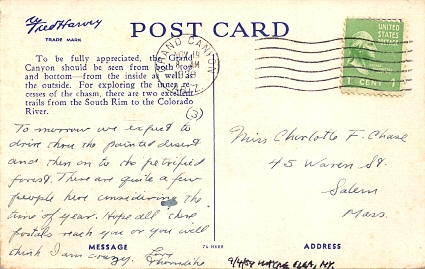 Fred Harvey
TRADE MARK
POST CARD
To be fully appreciated, the Grand
Canyon should be seen from both top
and bottom—from the inside as well as
the outside. For exploring the inner re-
cesses of the chasm, there are two excellent
trails from the South Rim to the Colorado
River.
GRAND CANYON
NOV 19
ARIZ.
UNITED
STATES
POSTAGE
1 CENT 1
3
To morrow we expect to
drive thru the painted desert
and then on to the petrified
forest. There are quite a few
people here considering the
time of year. Hope all these
postals reach you or you well
think I am crazy. Love
Miss Charlotte F. Chase
45 Waren St.
Salem
Mass.
MESSAGE
ADDRESS